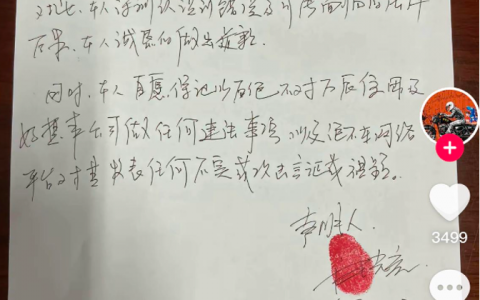 对此、本人深刻认识到错误及可能面临的法律
后果、本人诚恳的做出道歉.
同时、本人自愿保证以后绝不对万辰信用及
好想来公司做任何违法事项、以及绝不在网络
平台对其发表任何不实或攻击言论或视频。
声明人
3499